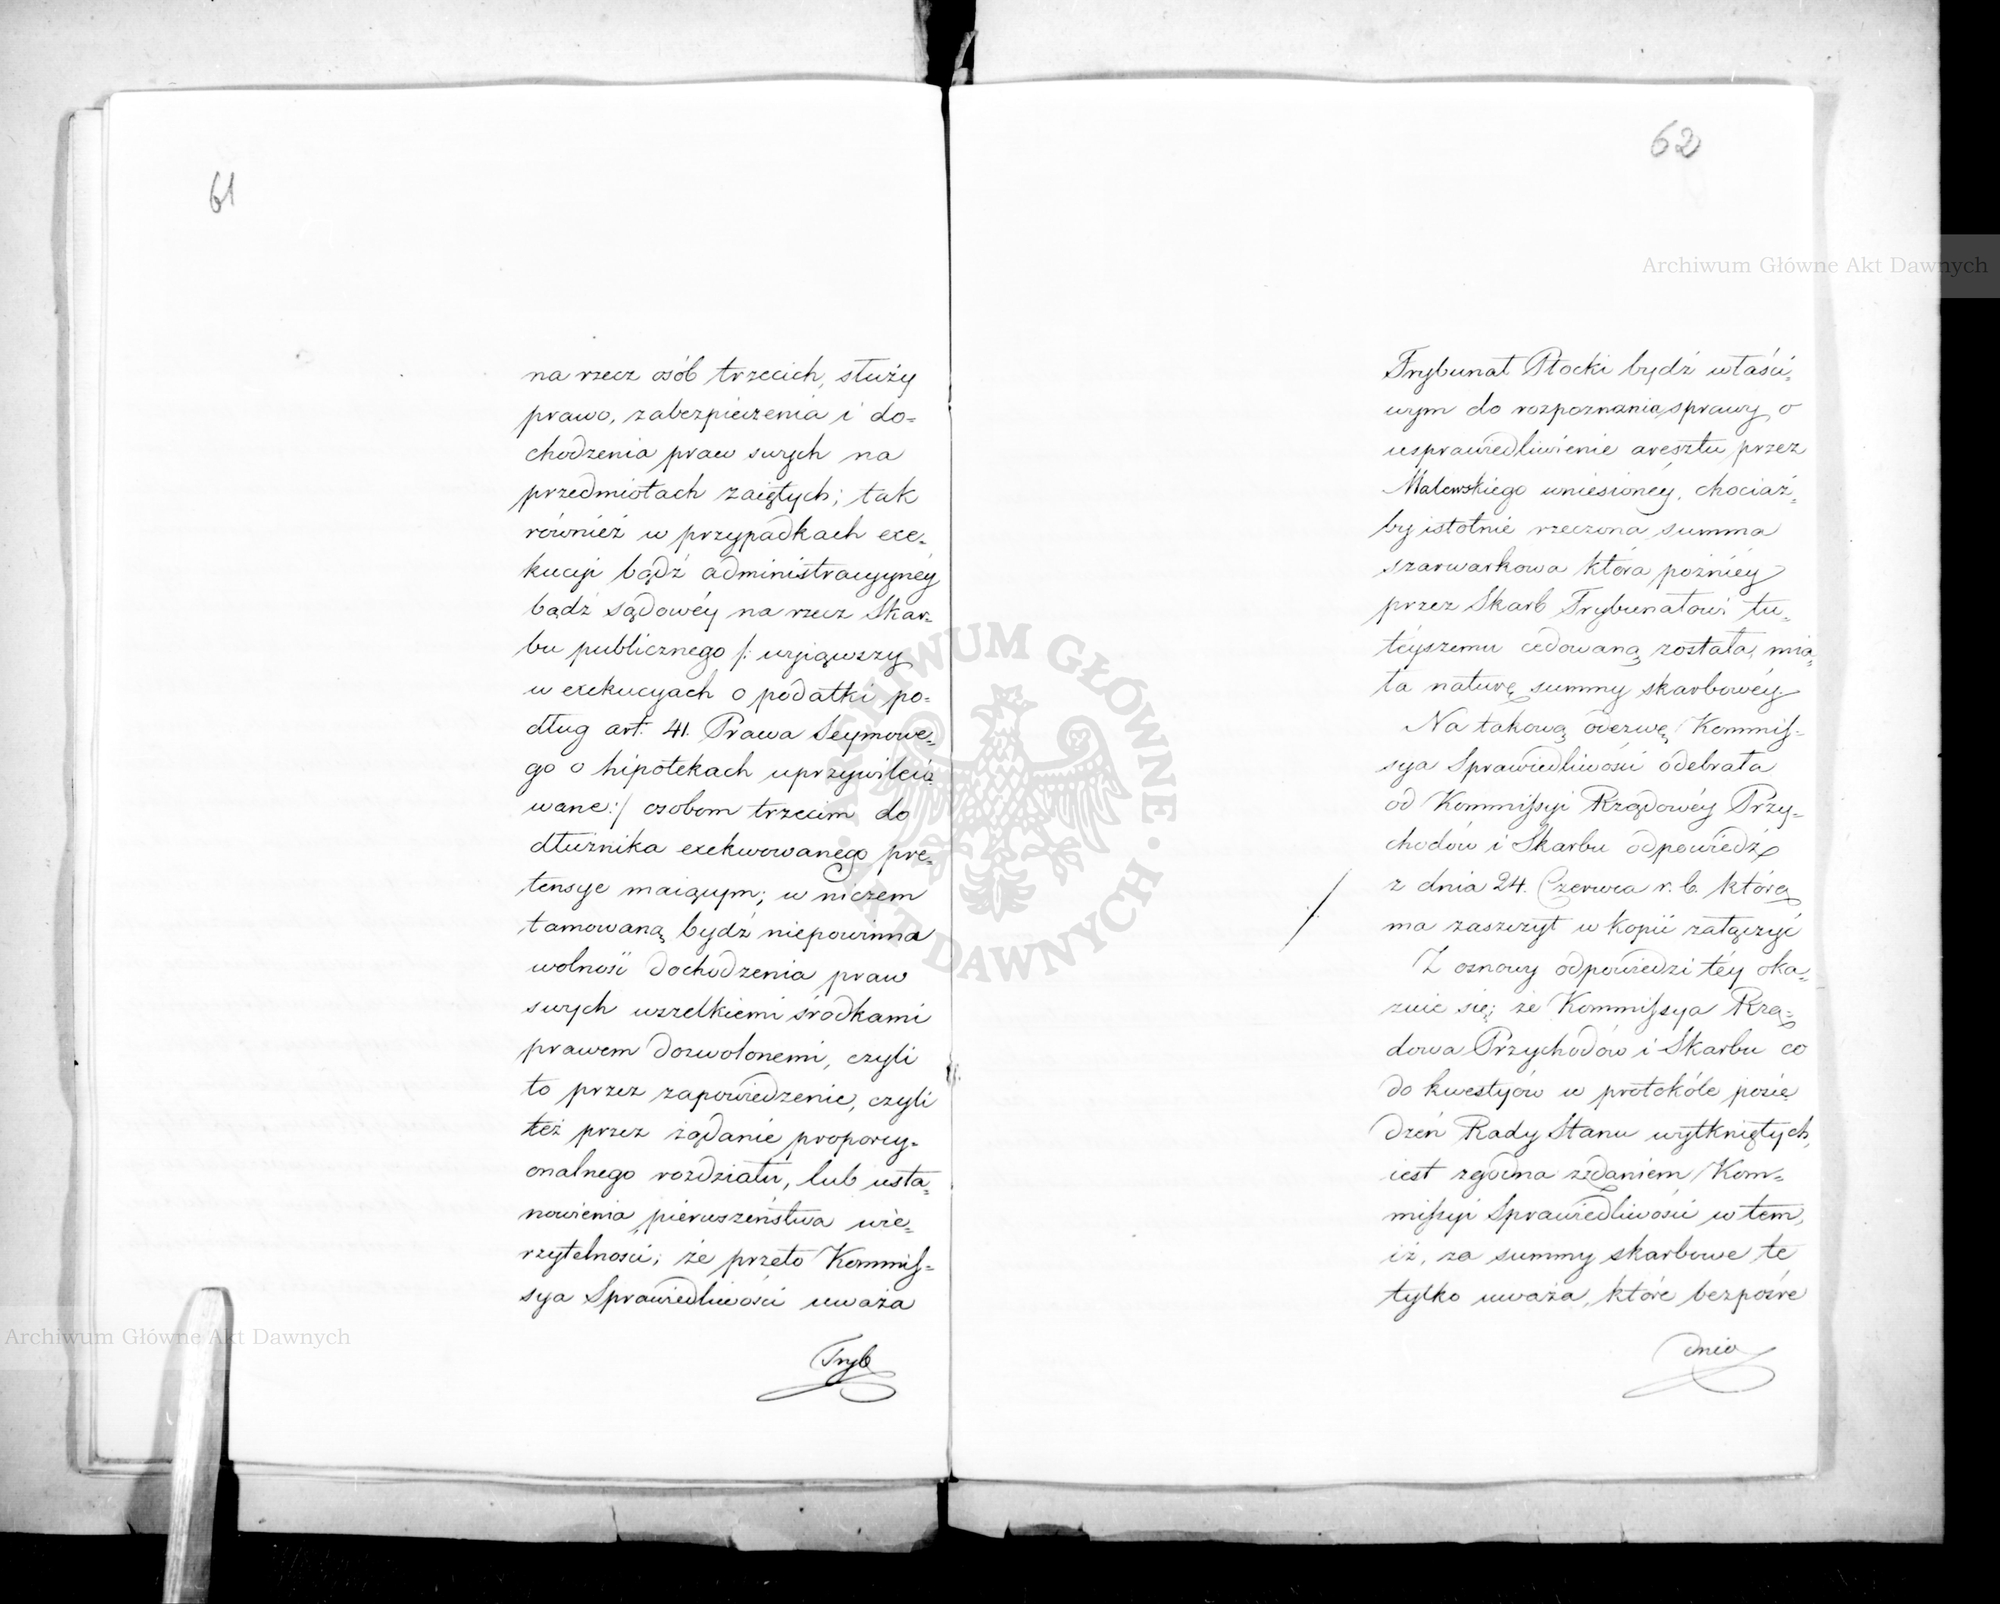 61
na rzecz osób trzecich, służy
prawo, zabezpieczenia i do-
chodzenia praw swych na
przedmiotach zaiętych; tak
również w przypadkach exe-
kucyi bądź administracyjnéy
bądź sądowéy na rzecz Skar-
bu publicznego /: wyiąwszy
w exekucyach o podatki po-
dług art. 41. Prawa Seymowe-
go o hipotekach uprzywileio-
wane:/ osobom trzecim do
dłużnika exekwowanego pre-
tensye maiącym; w niczem
tamowaną bydź niepowinna
wolność dochodzenia praw
swych wszelkiemi środkami
prawem dozwolonemi, czyli
to przez zapowiedzenie, czyli
też przez żądanie proporcy-
onalnego rozdziału, lub usta-
nowienia pierwszeństwa wie-
rzytelności; że przeto Kommis-
sya Sprawiedliwości uważa
Tryb
62
Trybunał Płocki bydź właści-
wym do rozpoznania sprawy o
usprawiedliwienie aresztu przez
Malewskiego uniesionéy, chociaż-
by istotnie rzeczona summa
szarwarkowa która poźniéy
przez Skarb Trybunałowi tu-
téyszemu cedowaną została, mia-
ła naturę summy skarbowéy.
Na takową odezwę Kommis-
sya Sprawiedliwości odebrała
od Kommissyi Rządowéy Przy-
chodów i Skarbu odpowiedź
z dnia 24. Czerwca r. b. którą
ma zaszczyt w kopii załączyć
Z osnowy odpowiedzi téy oka-
zuie się; że Kommissya Rzą-
dowa Przychodów i Skarbu co
do kwestyów w protokóle posie
dzeń Rady Stanu wytkniętych,
iest zgodna z zdaniem Kom-
missyi Sprawiedliwości w tem,
iż, za summy skarbowe te
tylko uważa, które bezpośre
dnio
Archiwum Główne Akt Dawnych
Archiwum Główne Akt Dawnych
ARCHIWUM GŁÓWNE AKT DAWNYCH